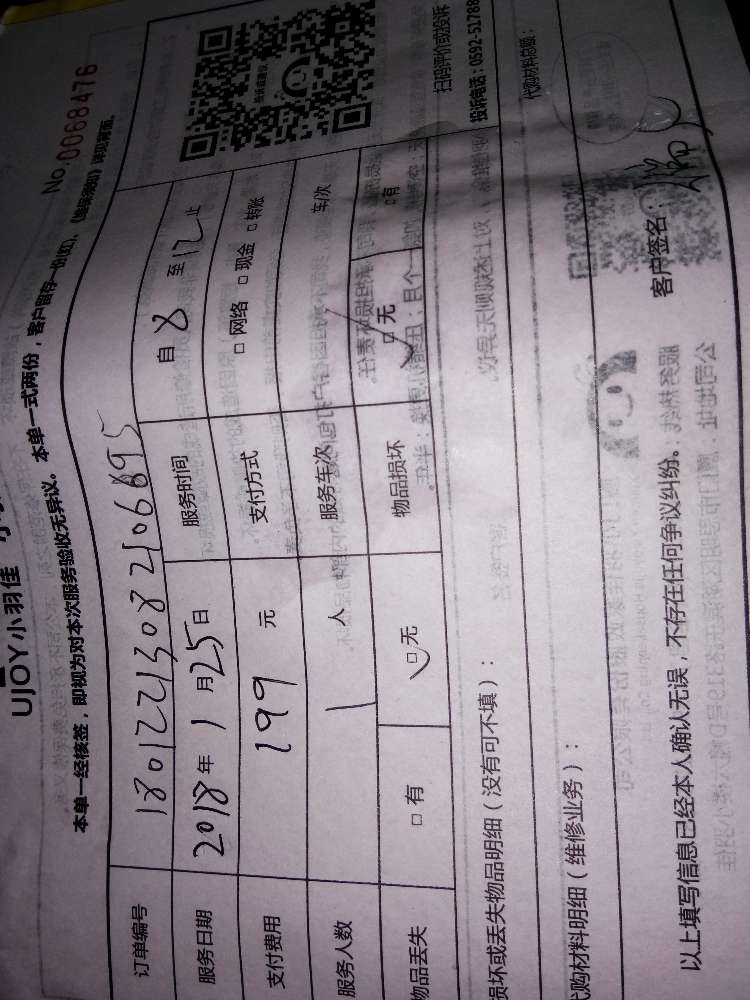 UJOY小羽佳
No.0068476
本单一经核签，即视为对本次服务验收无异议。本单一式两份，客户留存一份(红)，《维保须知》详见背面。
订单编号 18012213082106895
服务日期 2018年1月25日 服务时间 自8至12止
支付费用 199元 支付方式 □网络 □现金 □转账
服务人数 1人 服务车次 车/次
物品丢失 □有 □无 物品损坏 □无 □有
损坏或丢失物品明细（没有可不填）：
代购材料明细（维修业务）：
代购材料总额：
以上填写信息已经本人确认无误，不存在任何争议纠纷。 客户签名：
投诉或建议
扫码评价或投诉
投诉电话：0592-51788